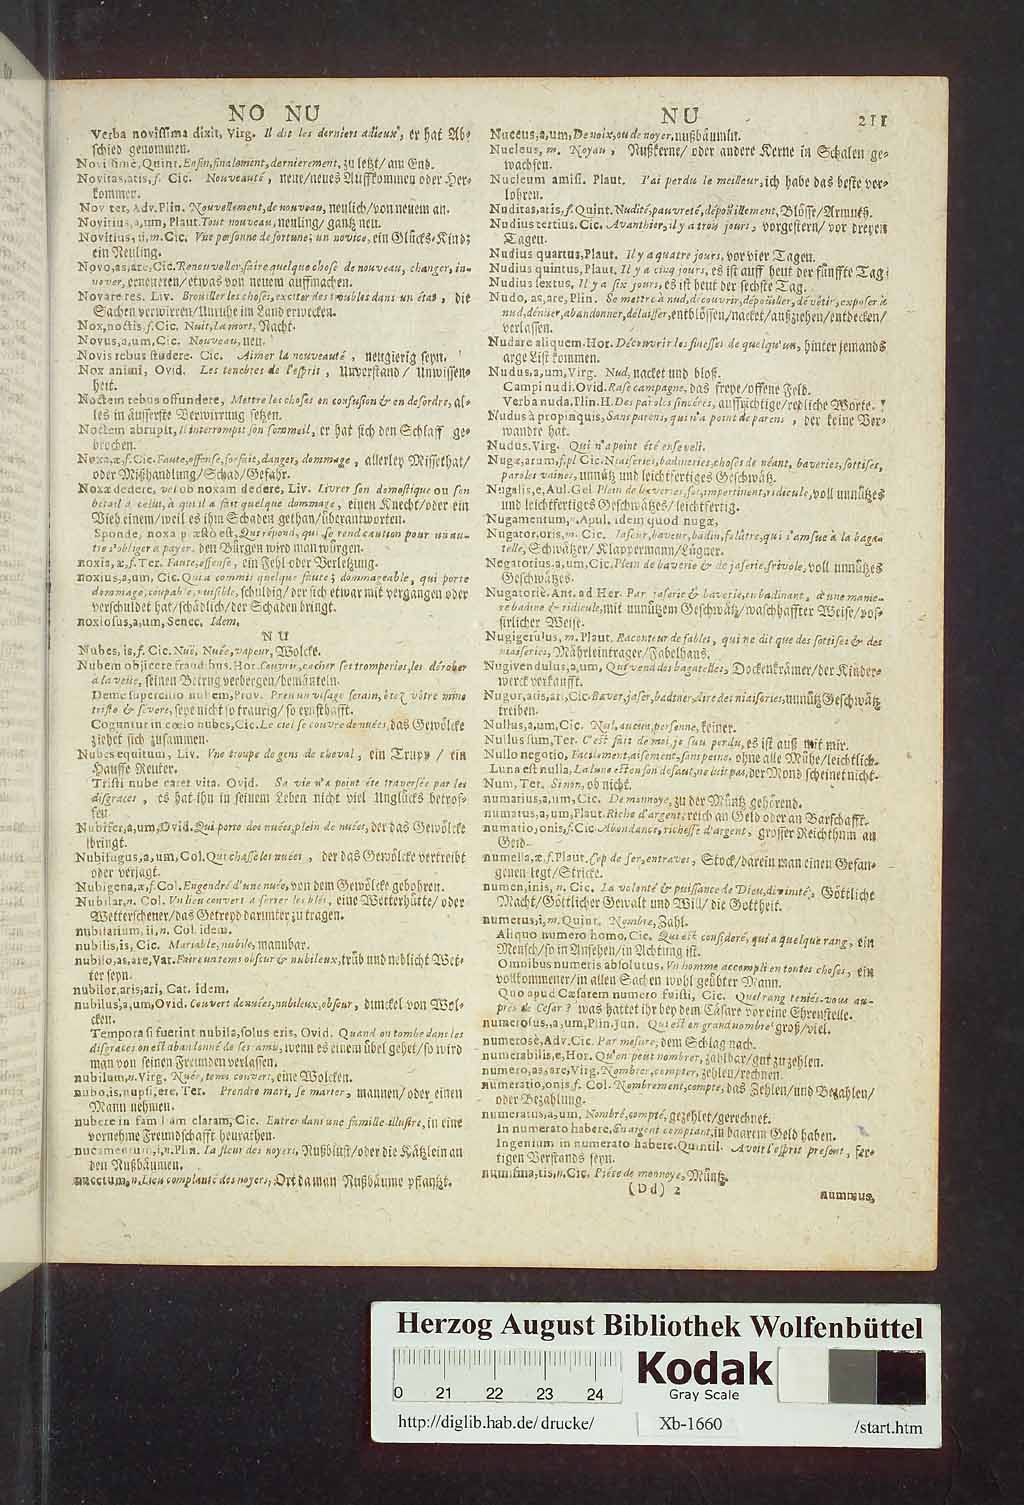 NO NU
Verba novissima dixit, Virg. Il dit les derniers adieux, er hat Ab-
schied genommen.
Novissime, Quint. Enfin, finalement, dernierement, zu letzt/ am End.
Novitas, atis, f. Cic. Nouveauté, neue/neues Auffkommen oder Her-
kommen.
Noviter, Adv. Plin. Nouvellement, de nouveau, neulich/von neuem an.
Novitius, a, um, Plaut. Tout nouveau, neuling/ gantz neu.
Novitius, ii, m. Cic. Une personne de fortune; un novice, ein Glücks-Kind;
ein Neuling.
Novo, as, are, Cic. Renouveller, faire quelque chose de nouveau, changer, in-
nover, erneueren/etwas von neuem auffmachen.
Novare res. Liv. Brouiller les choses, exciter des troubles dans un état, die
Sachen verwirren/Unruhe im Land erwecken.
Nox, noctis, f. Cic. Nuit, la mort, Nacht.
Novus, a, um, Cic. Nouveau, neu.
Novis rebus studere. Cic. Aimer la nouveauté, neugierig seyn.
Nox animi, Ovid. Les tenebres de l'esprit, Unverstand/ Unwissen-
heit.
Noctem rebus offundere, Mettre les choses en confusion & en desordre, al-
les in äusserste Verwirrung setzen.
Noctem abrupit, Il interrompit son sommeil, er hat sich den Schlaff ge-
brochen.
Noxa, æ, f. Cic. Faute, offense, forfait, danger, dommage, allerley Missethat/
oder Mißhandlung/Schad/Gefahr.
Noxæ dedere, vel ob noxam dedere, Liv. Livrer son domestique ou son
betail à celui, à qui il a fait quelque dommage, einen Knecht/oder ein
Vieh einem/weil es ihm Schaden gethan/überantworten.
Sponde, noxa præsto est, Qui répond, qui se rend caution pour un au-
tre s'oblige à payer. den Bürgen wird man würgen.
noxia, æ, f. Ter. Faute, offense, ein Fehl oder Verletzung.
noxius, a, um, Cic. Qui a commis quelque faute; dommageable, qui porte
dommage, coupable, nuisible, schuldig/ der sich etwar mit vergangen oder
verschuldet hat/schädlich/der Schaden bringt.
noxiosus, a, um, Senec. Idem.
NU
Nubes, is, f. Cic. Nuë, Nuée, vapeur, Wolcke.
Nubem objicere fraudibus. Hor. Couvrir, cacher ses tromperies, les dérober
à la veuë, seinen Betrug verbergen/bemänteln.
Deme supercilio nubem, Prov. Pren un visage serain, ôtez vôtre mine
triste & severe, seye nicht so traurig/ so ernsthafft.
Coguntur in cœlo nubes, Cic. Le ciel se couvre de nuées, das Gewölcke
ziehet sich zusammen.
Nubes equitum, Liv. Une troupe de gens de cheval, ein Trupp/ ein
Hauffe Reuter.
Tristi nube caret vita. Ovid. Sa vie n'a point été traversée par les
disgraces, es hat ihn in seinem Leben nicht viel Unglücks betrof-
fen.
Nubifer, a, um, Ovid. Qui porte des nuées, plein de nuées, der das Gewölcke
bringt.
Nubifugus, a, um, Col. Qui chasse les nuées, der das Gewölcke vertreibt
oder verjagt.
Nubigena, æ, f. Col. Engendré d'une nuée, von dem Gewölcke gebohren.
Nubilar, n. Col. Un lieu convert à serrer les blés, eine Wetterhütte/ oder
Wetterscheuer/das Getreyd darunter zu tragen.
nubilarium, ii, n. Col. idem.
nubilis, is, Cic. Mariable, nubile, mannbar.
nubilo, as, are, Var. Faire un tems obscur & nubileux, trüb und neblicht Wet-
ter seyn.
nubilor, aris, ari, Cat. Idem.
nubilus, a, um, Ovid. Couvert de nuées, nubileux, obscur, dunckel von Wol-
cken.
Tempora si fuerint nubila, solus eris, Ovid. Quand on tombe dans les
disgraces on est abandonné de ses amis, wenn es einem übel gehet/so wird
man von seinen Freunden verlassen.
nubilum, n. Virg. Nuée, tems couvert, eine Wolcken.
nubo, is, nupsi, ere, Ter. Prendre mari, se marier, mannen/ oder einen
Mann nehmen.
nubere in familiam claram, Cic. Entrer dans une famille illustre, in eine
vornehme Freundschafft heurathen.
nucamentum, i, n. Plin. La fleur des noyers, Nußblust/oder die Kätzlein an
den Nußbäumen.
nucetum, n. Lieu complanté des noyers, Ort da man Nußbäume pflantzt.
NU
211
Nuceus, a, um, De noix, ou de noyer, nußbäumin.
Nucleus, m. Noyau, Nußkerne/ oder andere Kerne in Schalen ge-
wachsen.
Nucleum amisi. Plaut. J'ai perdu le meilleur, ich habe das beste ver-
lohren.
Nuditas, atis, f. Quint. Nudité, pauvreté, dépoüillement, Blösse/Armuth.
Nudius tertius. Cic. Avanthier, il y a trois jours, vorgestern/ vor dreyen
Tagen.
Nudius quartus, Plaut. Il y a quatre jours, vor vier Tagen.
Nudius quintus, Plaut. Il y a cinq jours, es ist auff heut der fünffte Tag.
Nudius sextus, Il y a six jours, es ist heut der sechste Tag.
Nudo, as, are, Plin. Se mettre à nud, découvrir, dépoüiller, dévêtir, exposer le
nud, dénuer, abandonner, délaisser, entblössen/nacket/außziehen/entdecken/
verlassen.
Nudare aliquem. Hor. Découvrir les finesses de quelqu'un, hinter jemands
arge List kommen.
Nudus, a, um, Virg. Nud, nacket und bloß.
Campi nudi. Ovid. Rase campagne, das freye/offene Feld.
Verba nuda. Plin. H. Des paroles sincéres, auffrichtige/redliche Worte.
Nudus à propinquis, Sans parens, qui n'a point de parens, der keine Ver-
wandte hat.
Nudus. Virg. Qui n'a point été enseveli.
Nugæ, arum, f. pl. Cic. Niaiseries, badineries, choses de néant, baveries, sottises,
paroles vaines, unnütz und leichtfertiges Geschwätz.
Nugalis, e, Aul. Gel. Plein de baveries, sot, impertinent, ridicule, voll unnützes
und leichtfertiges Geschwätzes/leichtfertig.
Nugamentum, n. Apul. idem quod nugæ,
Nugator, oris, m. Cic. Jaseur, baveur, badin, folâtre, qui s'amuse à la baga-
telle, Schwätzer/ Klappermann/Lügner.
Negatorius, a, um, Cic. Plein de baverie & de jaserie, frivole, voll unnützes
Geschwätzes.
Nugatoriè. Ant. ad Her. Par jaserie & baverie, en badinant, d'une manie-
re badine & ridicule, mit unnützem Geschwätz/waschhaffter Weise/pos-
sirlicher Weise.
Nugigerulus, m. Plaut. Raconteur de fables, qui ne dit que des sottises & des
niaiseries, Mährleintrager/Fabelhans.
Nugivendulus, a, um, Qui vend des bagatelles, Dockenkrämer/der Kinder-
werck verkaufft.
Nugor, aris, ari, Cic. Baver, jaser, badiner, dire des niaiseries, unnütz Geschwätz
treiben.
Nullus, a, um, Cic. Nul, aucun, personne, keiner.
Nullus sum, Ter. C'est fait de moi, je suis perdu, es ist auß mit mir.
Nullo negotio, Facilement, aisement, sans peine. ohne alle Mühe/leichtlich.
Luna est nulla, La lune est en son defaut, ne luit pas, der Mond scheinet nicht.
Num, Ter. Sinon, ob nicht.
numarius, a, um, Cic. De monnoye, zu der Müntz gehörend.
numatus, a, um, Plaut. Riche d'argent, reich an Geld oder an Barschafft.
numatio, onis, f. Cic. Abondance, richesse d'argent, grosser Reichthum an
Geld.
numella, æ, f. Plaut. Cep de fer, entraves, Stock/darein man einen Gefan-
genen legt/Stricke.
numen, inis, n. Cic. La volonté & puissance de Dieu, divinité, Göttliche
Macht/Göttlicher Gewalt und Will/ die Gottheit.
numerus, i, m. Quint. Nombre, Zahl.
Aliquo numero homo, Cic. Qui est consideré, qui a quelque rang, ein
Mensch/so in Ansehen/in Achtung ist.
Omnibus numeris absolutus. Un homme accompli en toutes choses, ein
vollkommener/in allen Sachen wohl geübter Mann.
Quo apud Cæsarem numero fuisti, Cic. Quel rang teniés-vous au-
prés de César? was hattet ihr bey dem Cäsare vor eine Ehrenstelle.
numerosus, a, um, Plin. Jun. Qui est en grand nombre, groß/viel.
numerosè, Adv. Cic. Par mesure, dem Schlag nach.
numerabilis, e, Hor. Qu'on peut nombrer, zahlbar/gut zu zehlen.
numero, as, are, Virg. Nombrer, compter, zehlen/rechnen.
numeratio, onis, f. Col. Nombrement, compte, das Zehlen/und Bezahlen/
oder Bezahlung.
numeratus, a, um, Nombré, compté, gezehlet/gerechnet.
In numerato habere, En argent comptant, in baarem Geld haben.
Ingenium in numerato habere. Quintil. Avoir l'esprit present, fer-
tigen Verstands seyn.
numisma, tis, n. Cic. Piéce de monnoye, Müntz.
(Dd) 2
nummus,
Herzog August Bibliothek Wolfenbüttel
0 21 22 23 24
Kodak
Gray Scale
http://diglib.hab.de/drucke/ Xb-1660 /start.htm